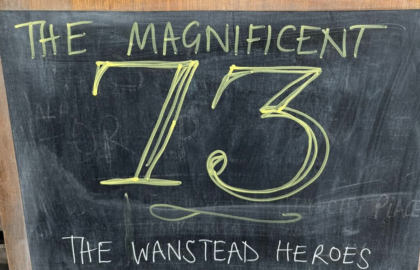 THE MAGNIFICENT
73
THE WANSTEAD HEROES